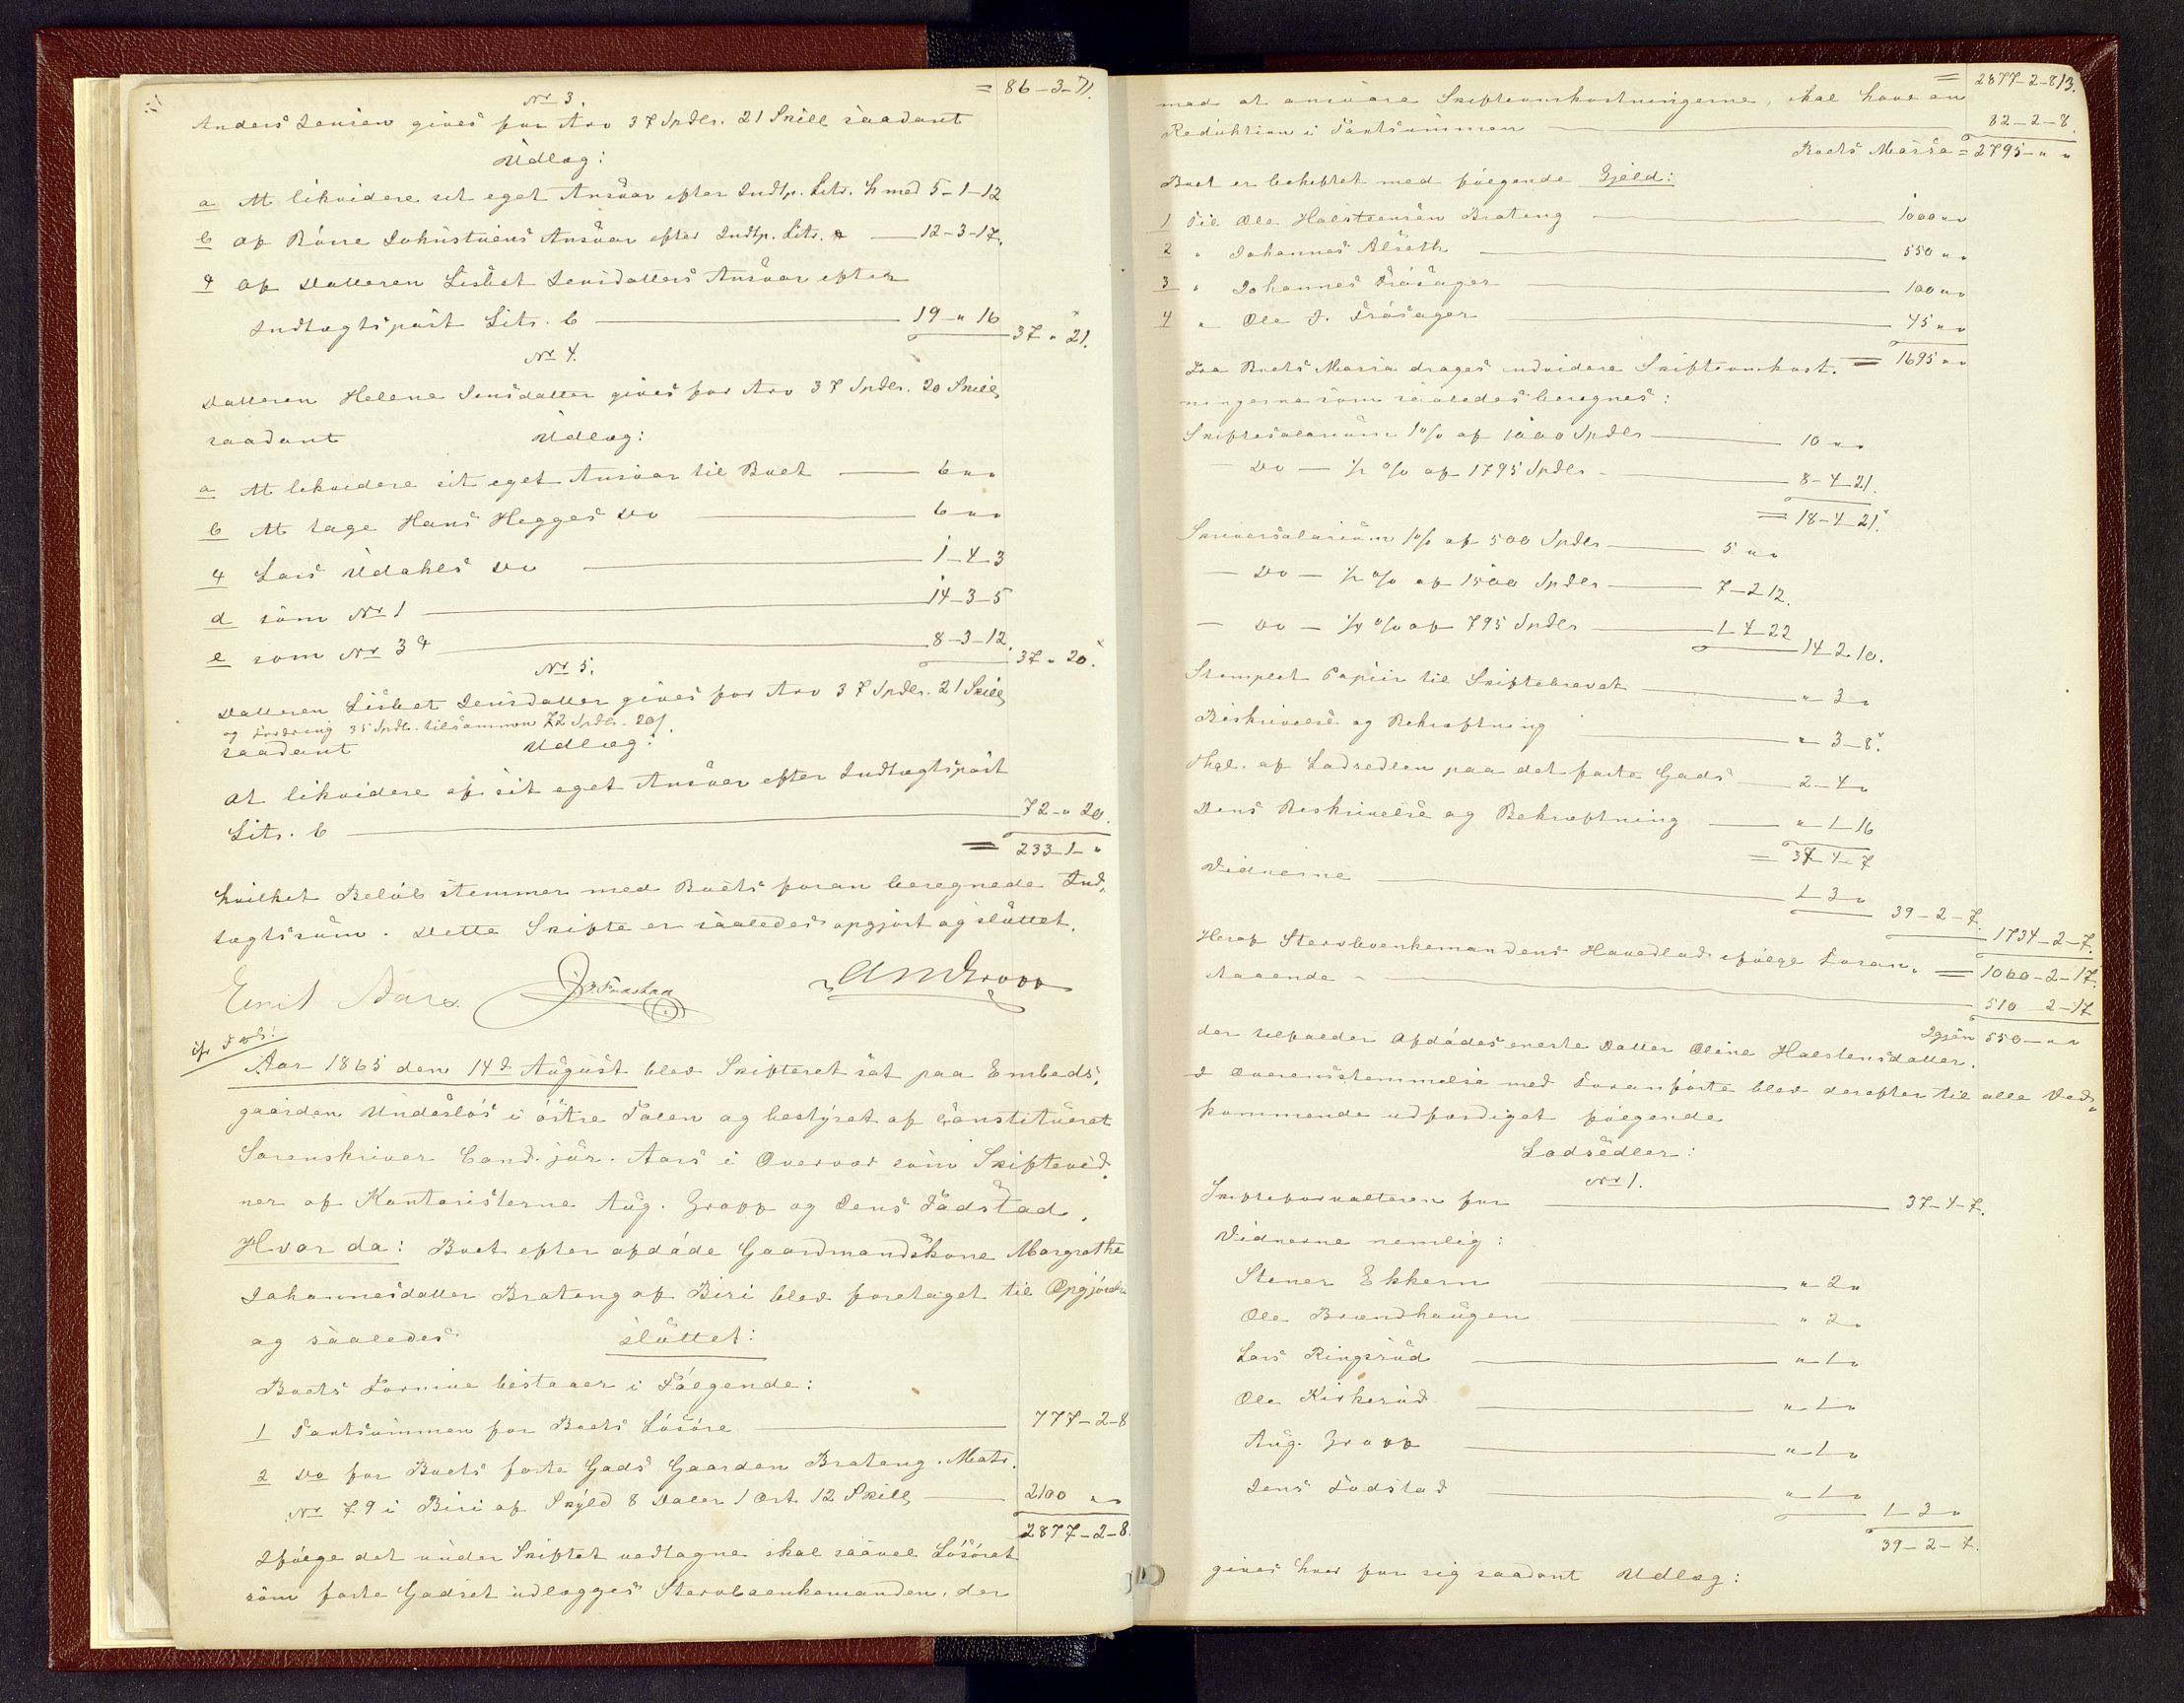 = 86-3-11.
No 3.
Anders Jensen gives for Arv 37 Spdlr. 21 Skill saadant
Udlæg:
a At likvidere sit eget Ansvar efter Indtp. Litr. h med 5-1-12
b af Børre Johnstuens Ansvar efter Indtp. Litr. 12-3-17.
c af Datteren Lisbet Jensdatters Ansvar efter
Indtægtspost Litr. b 19 " 16
37 " 21.
No 4.
Datteren Helene Jensdatter gives for Arv 37 Spdlr. 20 Skill,
saadant Udlæg:
a At likvidere sit eget Ansvar til Boet 6 " "
b At tage Hans Hegges Do 6 " "
c Lars Udahls Do 1-4-3
d som No 1 14-3-5
e som No 3 c 8-3-12.
37 " 20.
No 5.
Datteren Lisbet Jensdatter gives for Arv 37 Spdlr. 21 Skill,
og Fordring 35 Spdlr. tilsammen 72 Spdlr. 20
saadant Udlæg:
At likvidere af sit eget Ansvar efter Indtægtspost
Litr. b 72 " 20.
= 233-1-"
hvilket Beløb stemmer med Boets foran beregnede Ind-
tægtssum. Dette Skifte er saaledes opgjort og sluttet.
Emil Aars. J. Fodstad A M Gropp
Aar 1865 den 14d August blev Skifteret sat paa Embeds-
gaarden Undeslös i östre Toten og bestyret af constitueret
Sorenskriver Cand. jur. Aars i Overvær som Skiftevid-
ner af Kontoristerne Aug. Gropp og Jens Fodstad.
Hvor da: Boet efter afdöde Gaardmandskone Margrethe
Johannesdatter Brateng af Biri blev foretaget til Opgjörelse
og saaledes sluttet:
Boets Formue bestaaer i Fölgende:
1 Taxtsummen for Boets Lösöre 777-2-8
2 Do for Boets faste Gods Gaarden Brateng. Matr.
No 79 i Biri af Skyld 8 Daler 1 Ort 12 Skill, 2100 " "
2877-2-8
Ifölge det under Skiftet vedtagne skal saavel Lösöret
som faste Godset udlægges Stervboenkemanden, der
= 2877-2-8
mod at ansvare Skifteomkostningerne, skal have en
Reduktion i Taxtsummen 82-2-8.
Boets Massa = 2795 " "
Boet er beheftet med fölgende Gjeld:
1 Til Ole Halstensen Brateng 1000 " "
2 " Johannes Alseth 550 " "
3 " Johannes Frösager 100 " "
4 " Ole J. Frösager 45 " "
= 1695 " "
Fra Boets Massa drages udvidere Skifteomkost-
ningerne som saaledes beregnes:
Skiftesalarium 1% af 1000 Spdlr 10 " "
- Do - ½ % af 1795 Spdlr 8-4-21.
= 18-4-21.
Skriversalarium 1% af 500 Spdlr 5 " "
- Do - ½ % af 1500 Spdlr 7-2 12.
- Do - ¼ % af 795 Spdlr 1-4-22
14-2-10.
Stemplet Papiir til Skiftebrevet " 3 "
Beskrivelse og Bekræftning " 3-8.
Thgl. af Lodsedlen paa det faste Gods 2-4 "
Dens Beskrivelse og Bekræftning " 1-16
= 37-4-7
Vidnerne 1-3 "
39-2-7.
1734-2-7.
= 1060-2-17.
Heraf Stervboenkemandens Hovedlod ifölge Foran-
staaende 510 2-17
Igjen 550 " "
der tilfalder Afdödes eneste Datter Oline Halstensdatter.
I Overensstemmelse med Foranförte blev derefter til alle Ved-
kommende udfærdiget fölgende
Lodsedler:
No 1.
Skifteforvalteren for 37-4-7.
Vidnerne nemlig:
Stener Ekkern " 2 "
Ole Brændhaugen " 2 "
Lars Ringsrud " 1 "
Ole Kirkerud " 1 "
Aug. Gropp " 1 "
Jens Fodstad " 1 "
1-3 "
39-2-7.
gives hver for sig saadant Udlæg: